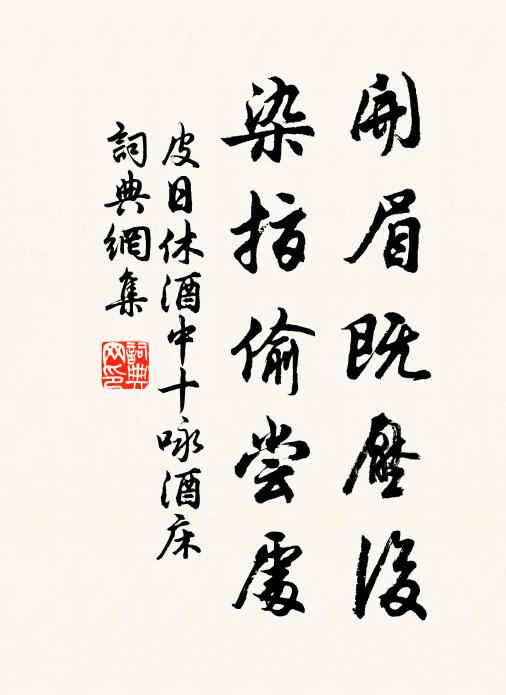 開眉既壓後
染指偷嘗處
皮日休酒中十咏酒床
詞典網集
詞典網印